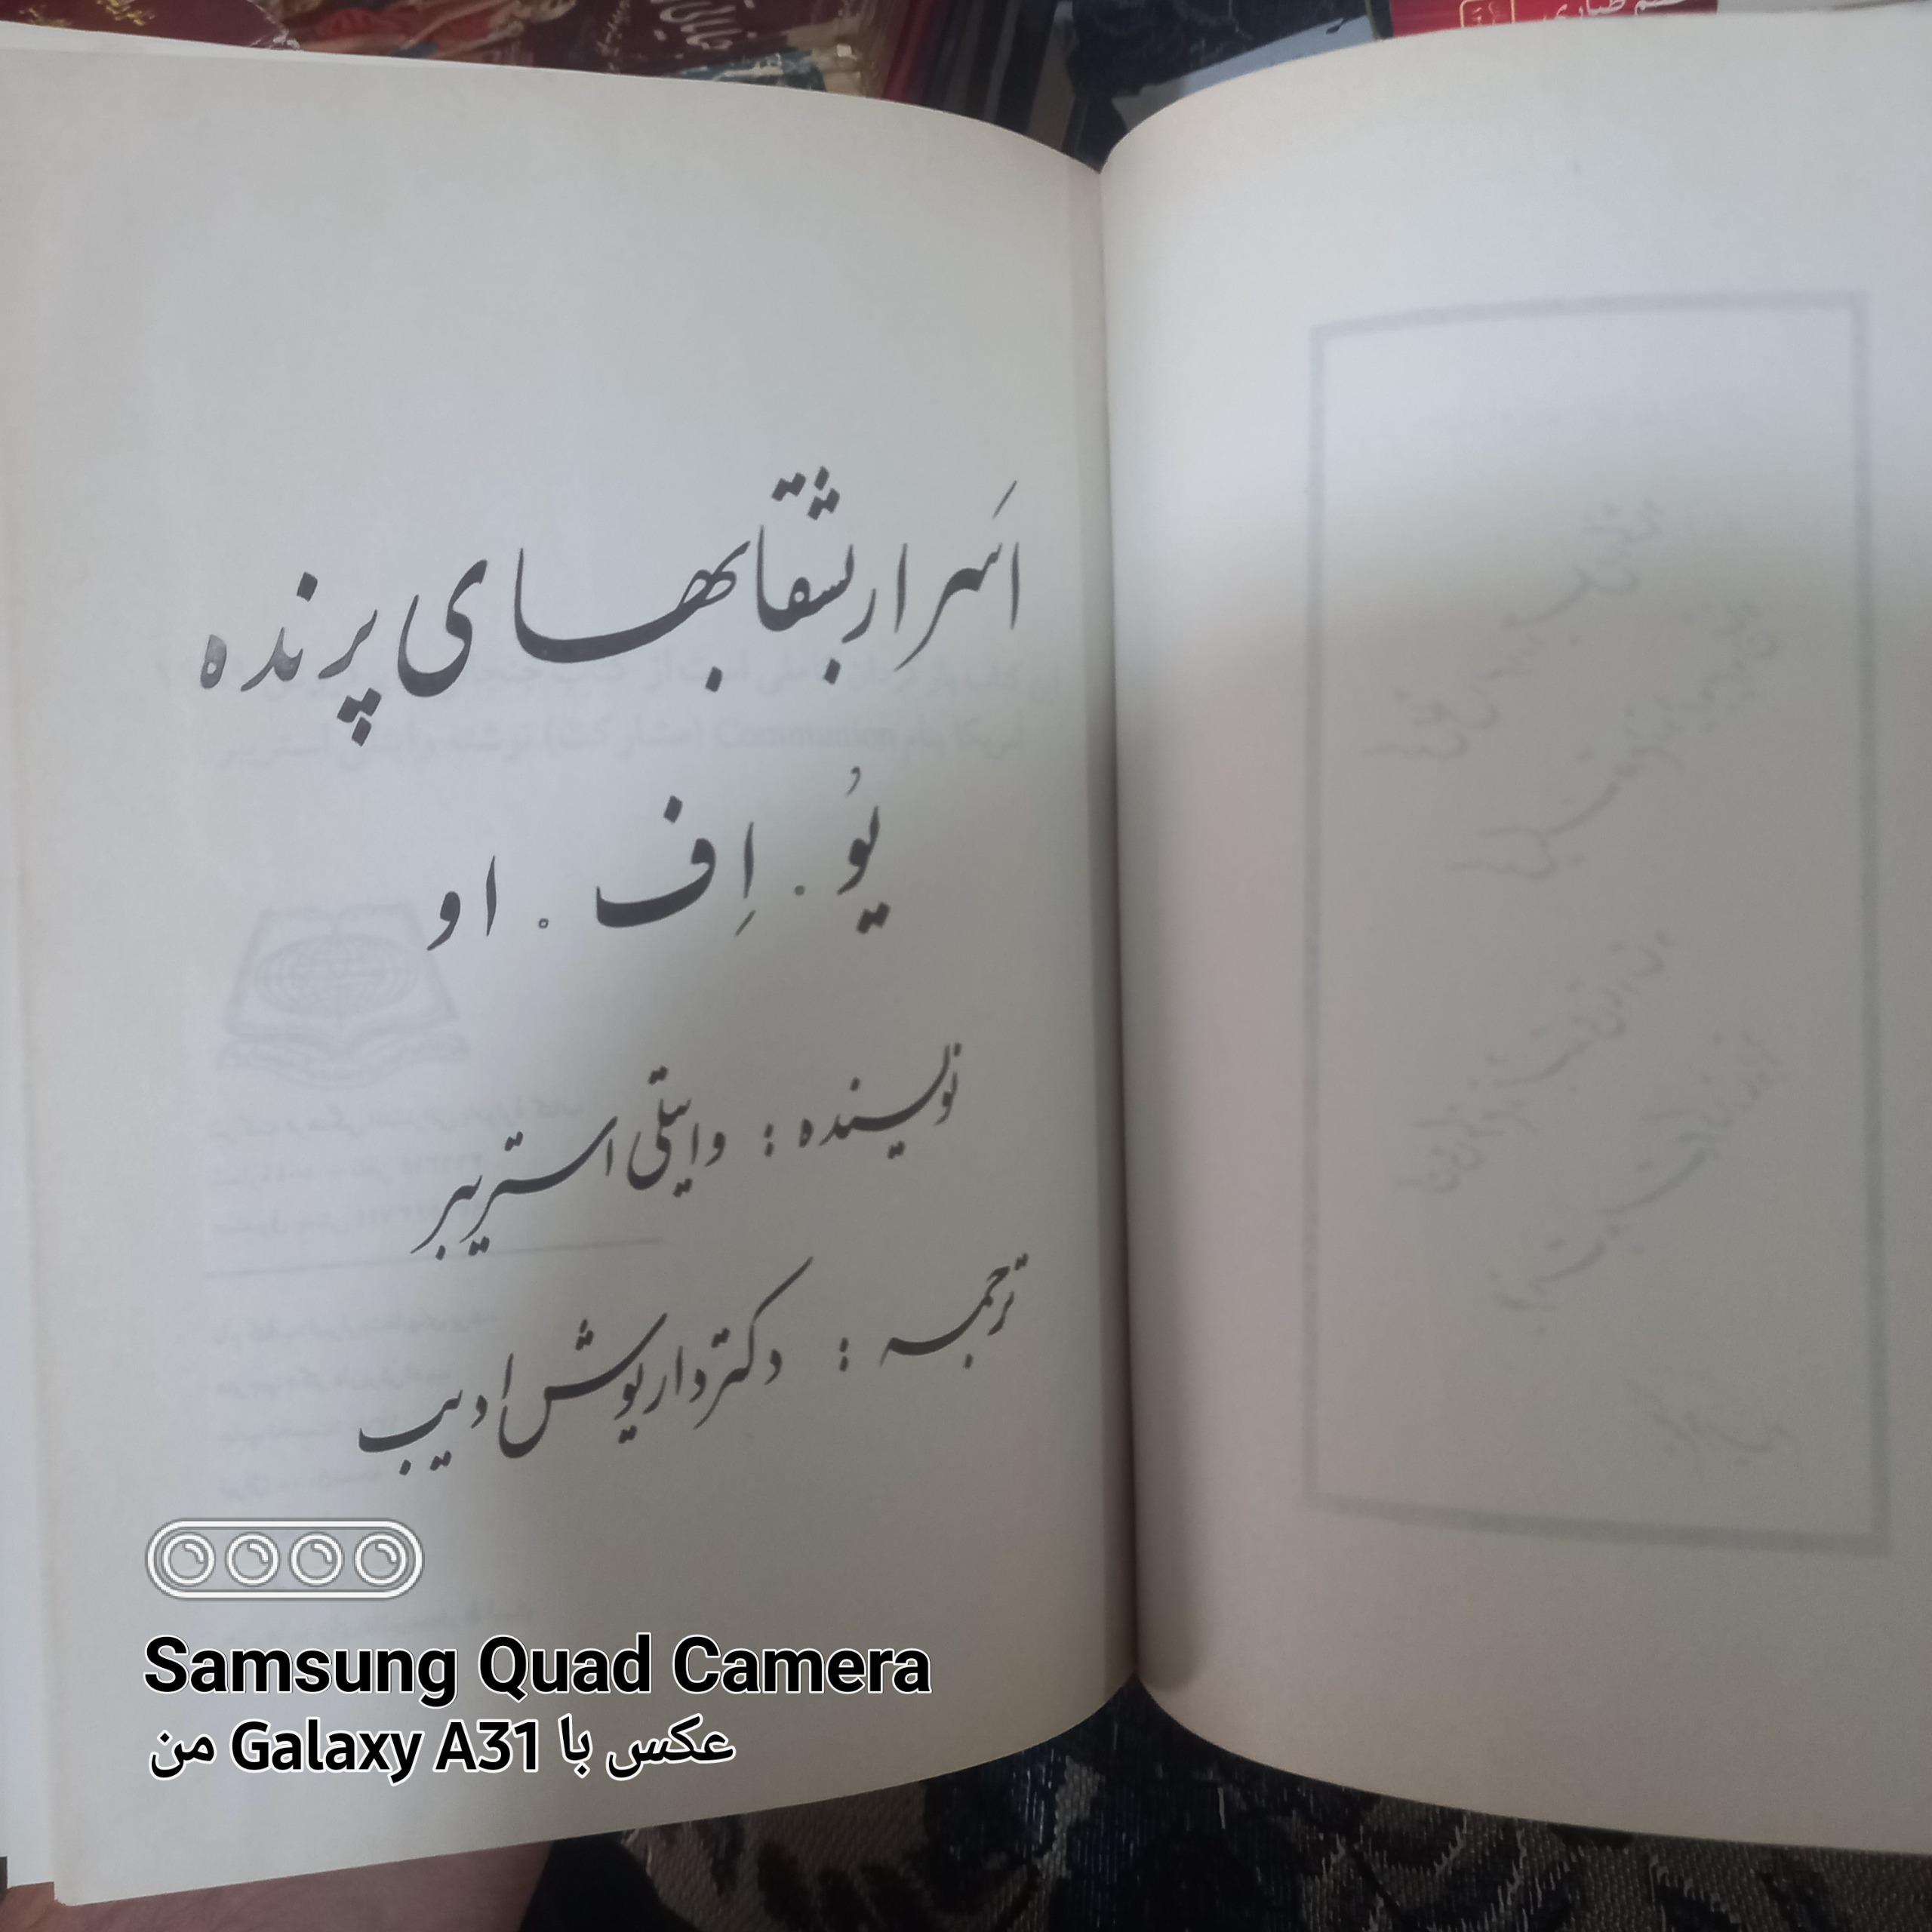 اَسرار بشقابهای پرنده
یُو . اِف . او
نویسنده : وایتلی استریبر
ترجمه : دکتر داریوش ادیب
Samsung Quad Camera
عکس با Galaxy A31 من